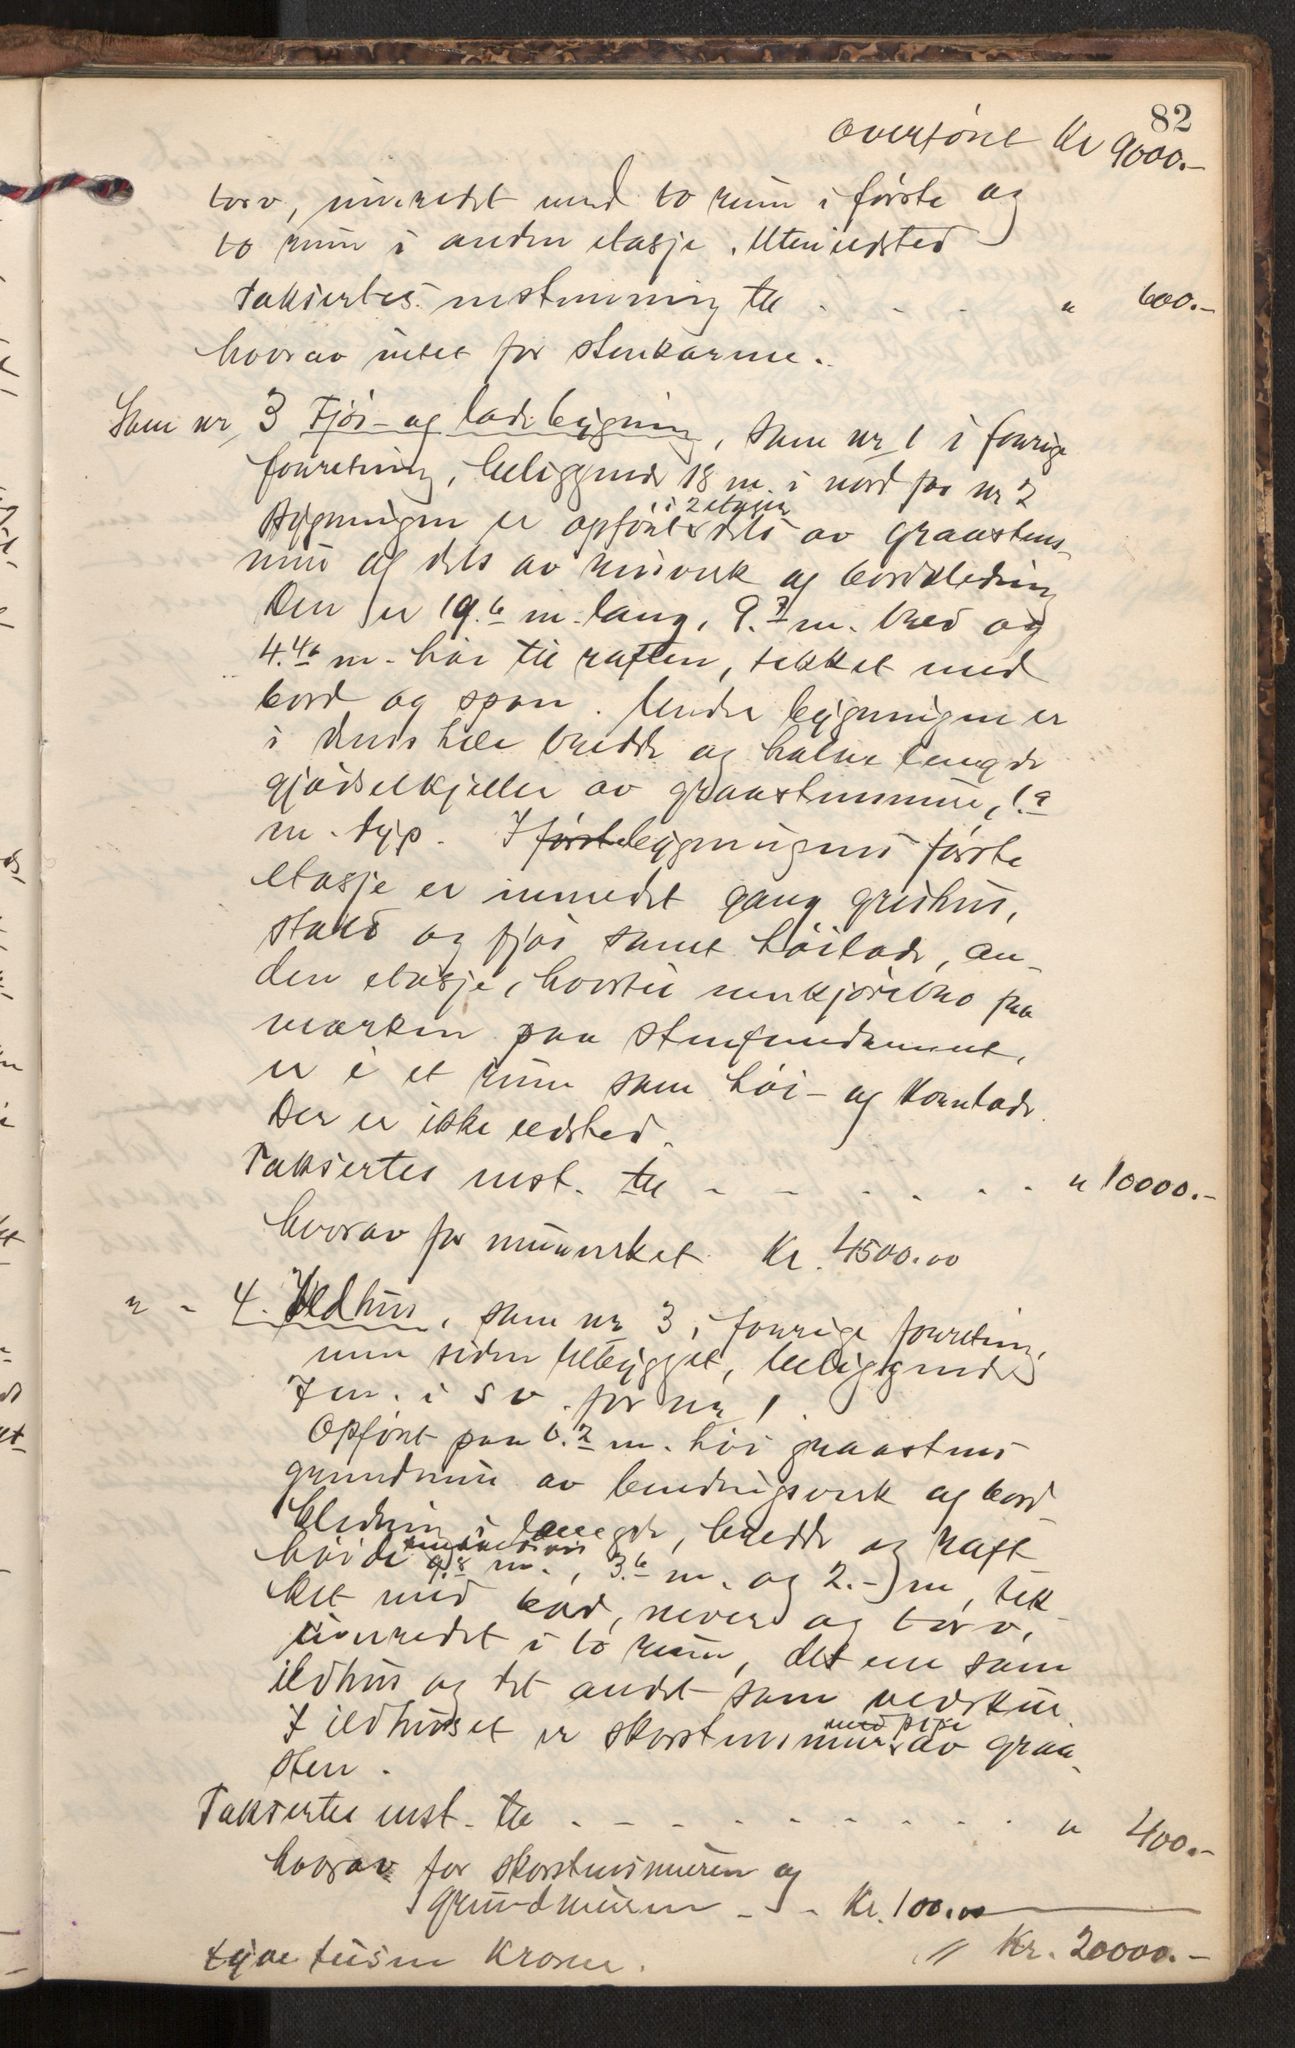 82
Overført Kr 9000.-
torv, innredet med to rum i første og
to rum i anden etasje. Uten ildsted
Taksertes institutning til . . . " 600.-
hvorav intet for stenkarme.
Som nr 3 Fjøs- og ladebygning, som nr 1 i forrige
forretning, beliggende 18 m. i nord for nr 2
i 2 etasjer
Bygningen er opført dels av graastens-
mur og dels av reisverk og bordkledning
Den er 19.6 m. lang, 9.7 m. bred og
4.46 m. høi til raften, tekket med
bord og spon. Under bygningen er
i dens hele bredde og halve længde
gjødselkjeller av graastensmure, 1.9
m. dyp. I først bygningens første
etasje er innredet gang, grishus,
stald og fjøs samt høilade, an-
den etasje, hvortil innkjørelbro fra
marken paa stenfundament,
er i et rum som høi- og Kornlade.
Der er ikke ildsted.
Taksertes inst. til - - - . . . . " 10000.-
hvorav for murverket Kr. 4500.00
" - 4. Ildhus, som nr 3 i forrige forretning,
men siden tilbygget, beliggende
7 m. i S V. for nr 1.
Opført paa 0.2 m. høi graastens
grundmur av bindingsverk og bord
kledning i længde, bredde og raft
høide
9.8 m., 3.6 m. og 2.- m, tek-
ket med bord, never og torv,
innredet i to rum, det ene som
ildhus og det andet som vedskur.
med pipe
I ildhuset er skorstensmur av graa-
sten.
Taksertes inst. til . - - - . . . . . " 400.-
hvorav for skorstensmuren og
grundmuren - - - Kr. 100.00
tyve tusen Kroner. // Kr. 20000.-